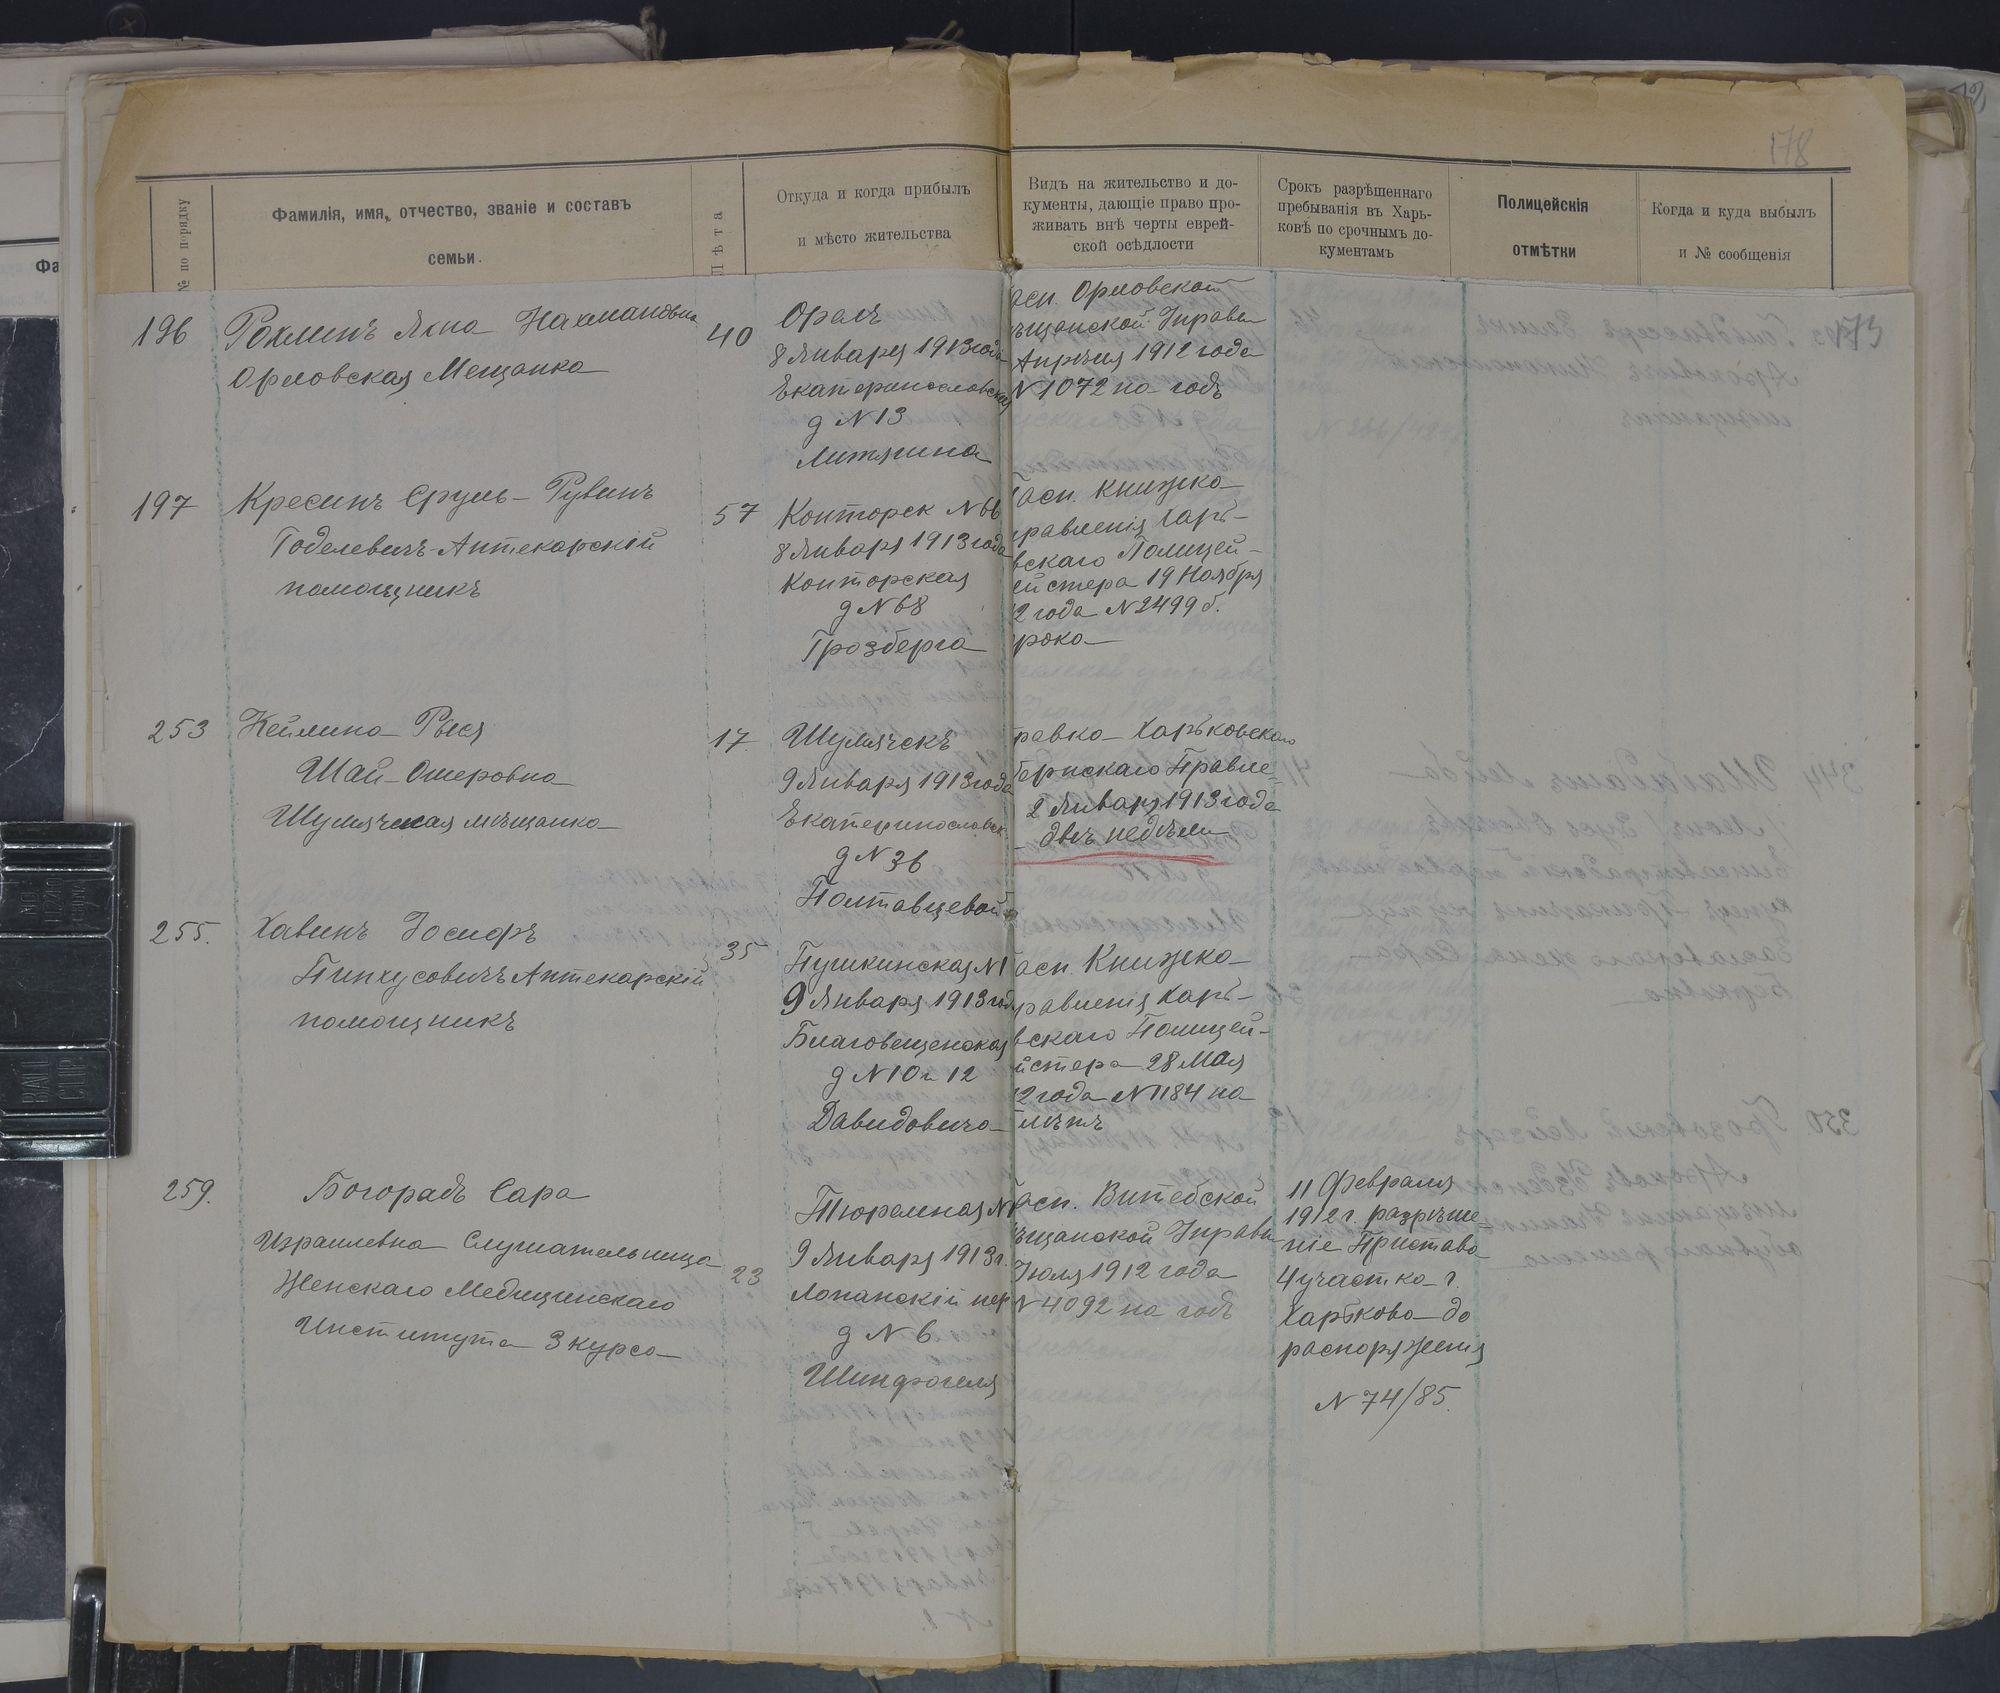 178
№ по порядку
Фамилія, имя, отчество, званіе и составъ
семьи.
Лѣта
Откуда и когда прибылъ
и мѣсто жительства
Видъ на жительство и до-
кументы, дающіе право про-
живать внѣ черты еврей-
ской осѣдлости
Срокъ разрѣшеннаго
пребыванія въ Харь-
ковѣ по срочнымъ до-
кументамъ
Полицейскія
отмѣтки
Когда и куда выбылъ
и № сообщенія
196
Рохлинъ Нахмановна
Орловская Мещанка
40
Орелъ
8 Января 1913 года
Екатеринославская
д N 13
асп. Орловской
ѣщанской Управы
Апрѣля 1912 года
N 1072 на годъ
197
Кресинъ Сруль-Рувинъ
Годелевичъ-Аптекарскій
помощникъ
57
Конторск N 66
8 Января 1913 года
Конторская
д N 68
Грозберга
асп. книжка
правленія Харь-
вскаго Полицей-
ейстера 19 Ноября
2 года N 2499 б.
рока
253
Кейлина Рыся
Шай-Ошеровна
Шумячская мѣщанка
17
Шумячскъ
9 Января 1913 года
Екатеринославск.
д N 36
Полтавцевой
равка Харьковскаго
бернскаго Правле-
2 Января 1913 года
двѣ недѣли
255.
Хавинъ Іосифъ
Пинхусовичъ Аптекарскій
помощникъ
35
Пушкинская N 1
9 Января 1913 год
Благовещенская
д N 10 и 12
Давидовича
асп. Книжка
равленія Харь-
вскаго Полицей-
йстера 28 Мая
12 года N 1184 на
лѣтъ
259.
Богорадъ Сара
Израилевна Слушательница
Женскаго Медицинскаго
Института 3 курса
23
Тюремная N
9 Января 1913 г.
Лопанскій пер
д N 6
Шинфогеля
асп. Витебской
ѣщанской Управы
Іюля 1912 года
N 4092 на годъ
11 Февраля
1912 г. разрѣше-
ніе Пристава
4 участка г.
Харькова до
распоряженія
N 74/85.